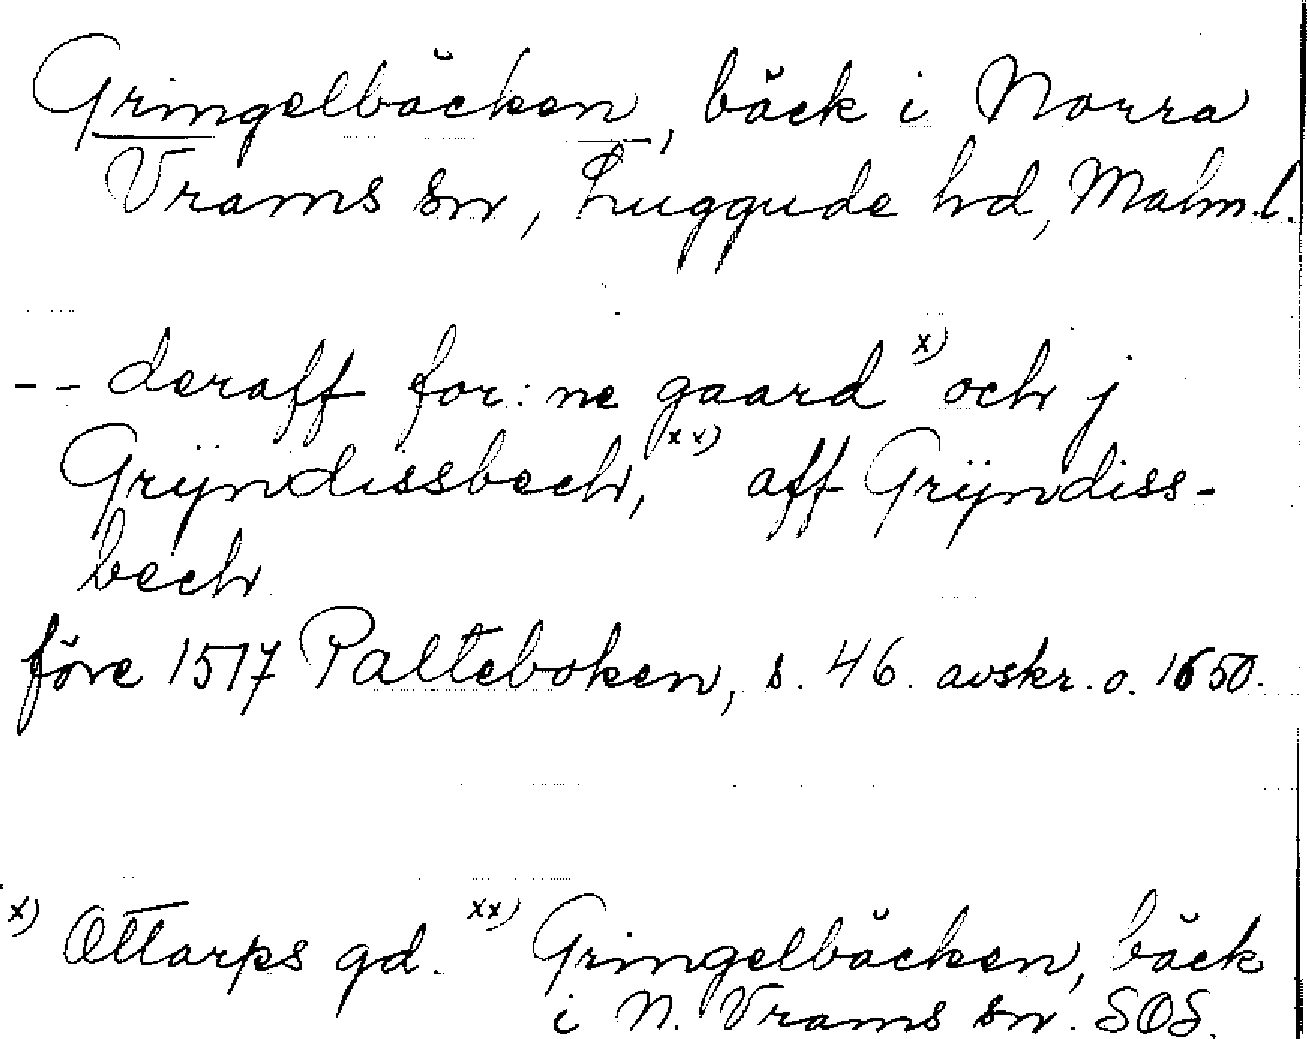 Gringelbäcken, bäck i Norra
Vrams sn, Luggude hd, Malm.l.
-- deraff for:ne gaard x) och j
Grÿndissbech, xx) aff Grÿndiss-
bech
före 1517 Palteboken, s. 46. avskr. o. 1650.
x) Ottarps gd. xx) Gringelbäcken, bäck
i N. Vrams sn. SOS.